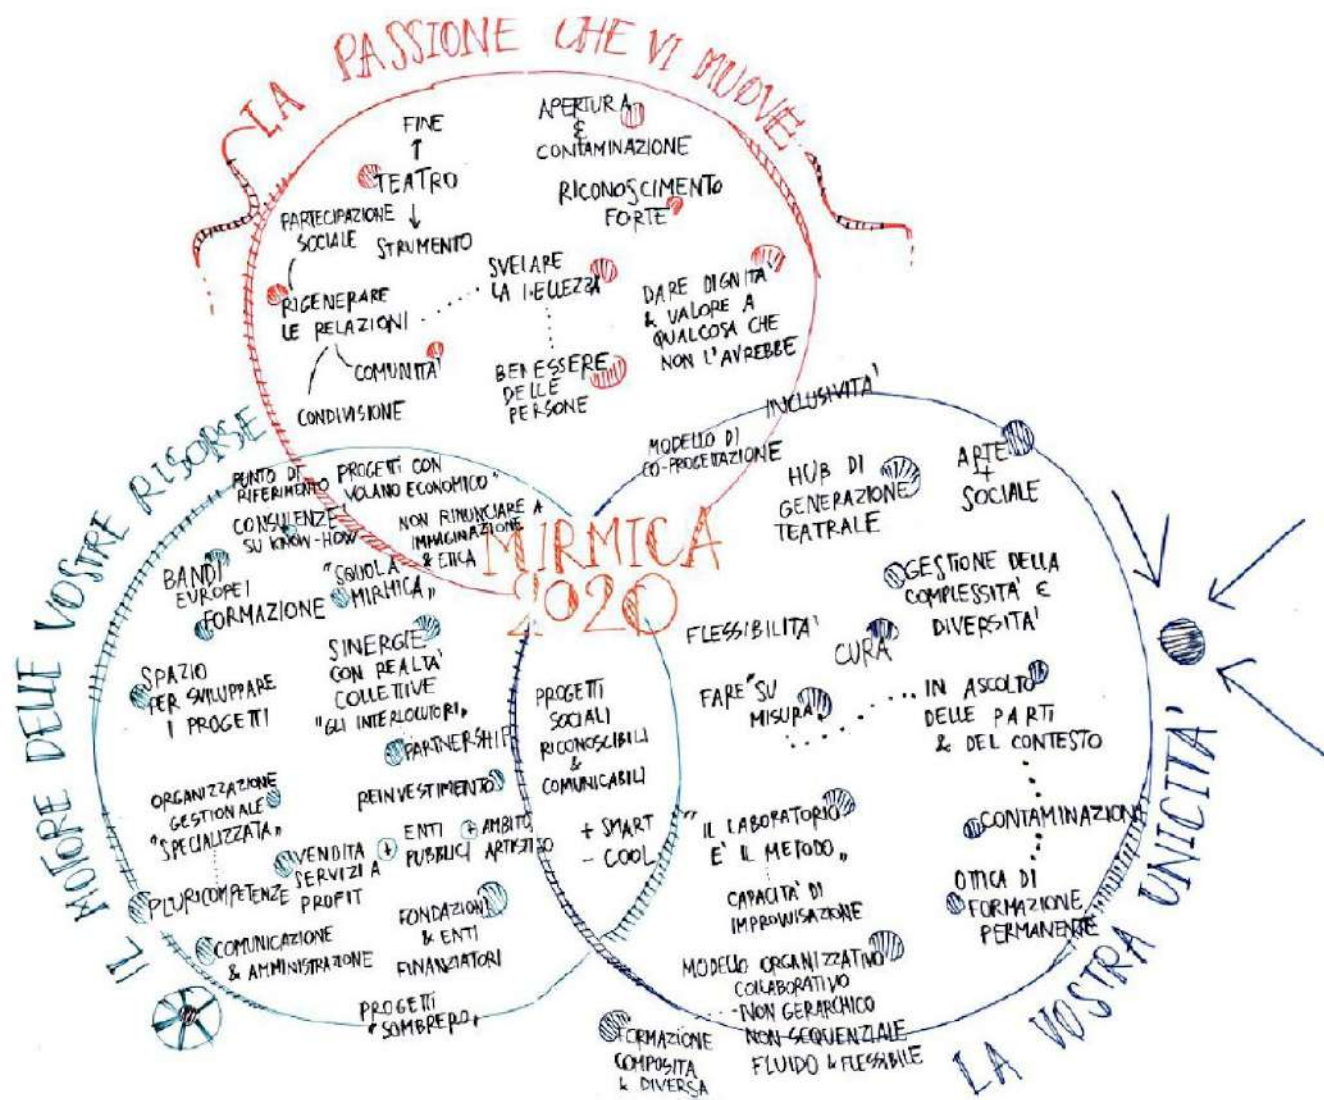 LA PASSIONE CHE VI MUOVE
FINE
TEATRO
STRUMENTO
PARTECIPAZIONE
SOCIALE
RIGENERARE
LE RELAZIONI
COMUNITA'
CONDIVISIONE
APERTURA
&
CONTAMINAZIONE
RICONOSCIMENTO
FORTE
SVELARE
LA BELLEZZA
BENESSERE
DELLE
PERSONE
DARE DIGNITA'
& VALORE A
QUALCOSA CHE
NON L'AVREBBE
INCLUSIVITA'
MODELLO DI
CO-PROGETTAZIONE
MIRMICA
2020
IL MOTORE DELLE VOSTRE RISORSE
PUNTO DI
RIFERIMENTO
PROGETTI CON
VOLANO ECONOMICO"
CONSULENZE
SU KNOW-HOW
NON RINUNCIARE A
IMMAGINAZIONE
& ETICA
BANDI
EUROPEI
FORMAZIONE
"SQUOLA
MIRMICA"
SPAZIO
PER SVILUPPARE
I PROGETTI
SINERGIE
CON REALTA'
COLLETTIVE
"GLI INTERLOCUTORI"
PARTNERSHIP
REINVESTIMENTO
ORGANIZZAZIONE
GESTIONALE
"SPECIALIZZATA"
PLURICOMPETENZE
VENDITA
SERVIZI A
PROFIT
+ ENTI
PUBBLICI
+ AMBITO
ARTISTICO
COMUNICAZIONE
& AMMINISTRAZIONE
FONDAZIONI
& ENTI
FINANZIATORI
PROGETTI
"SOMBRERO"
PROGETTI
SOCIALI
RICONOSCIBILI
&
COMUNICABILI
+ SMART
- COOL
LA VOSTRA UNICITA'
HUB DI
GENERAZIONE
TEATRALE
ARTE
+
SOCIALE
GESTIONE DELLA
COMPLESSITA' E
DIVERSITA'
FLESSIBILITA'
CURA
FARE "SU
MISURA"
IN ASCOLTO
DELLE PARTI
& DEL CONTESTO
CONTAMINAZIONI
OTTICA DI
FORMAZIONE
PERMANENTE
"IL LABORATORIO
E' IL METODO"
CAPACITA' DI
IMPROVVISAZIONE
MODELLO ORGANIZZATIVO
COLLABORATIVO
NON GERARCHICO
NON SEQUENZIALE
FLUIDO & FLESSIBILE
FORMAZIONE
COMPOSITA
& DIVERSA